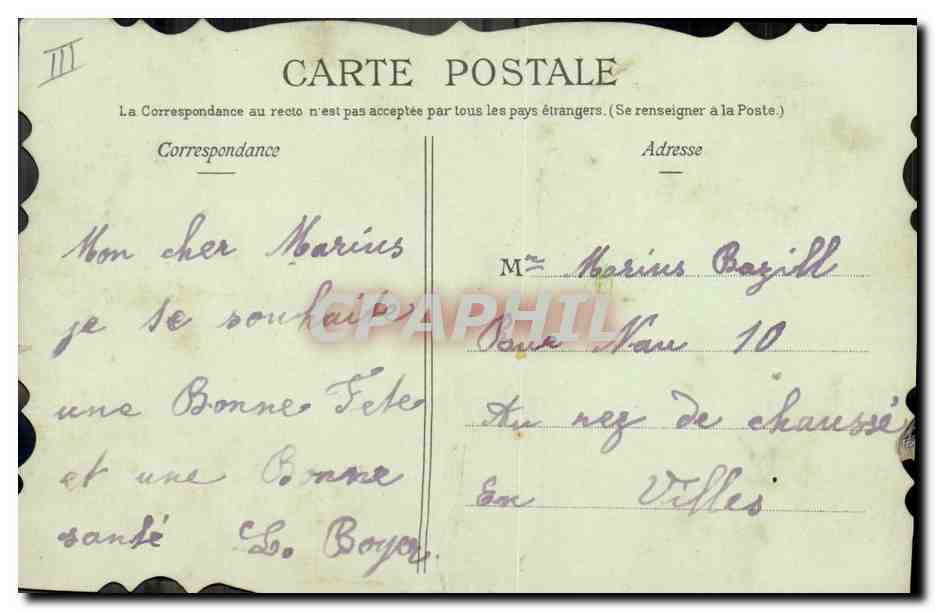 III
CARTE POSTALE
La Correspondance au recto n'est pas acceptée par tous les pays étrangers. (Se renseigner à la Poste.)
Correspondance
Mon cher Marius
je te souhaite
une Bonne Fete
et une Bonne
santé L. Boyer.
Adresse
M Marius Bazill
Nau 10
Au rez de chaussé
En Villes
CPAPHIL